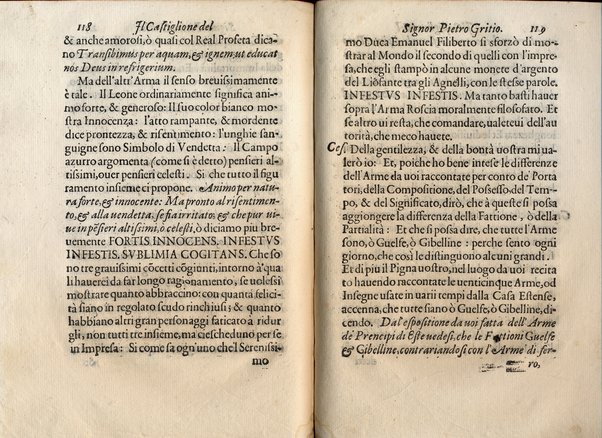 118
Il Castiglione del
& anche amorosi, ò quasi col Real Profeta dica-
no Transibimus per aquam, & ignem, ut educat
nos Deus in refrigerium.
Ma dell'altr'Arma il senso breuissimamente
è tale. Il Leone ordinariamente significa ani-
mo forte, & generoso: Il suo color bianco mo-
stra Innocenza: l'atto rampante, & mordente
dice prontezza, & risentimento: l'unghie san-
guigne sono Simbolo di Vendetta: Il Campo
azurro argomenta (come si è detto) pensieri al-
tissimi, ouer pensieri celesti. Si che tutto il figu-
ramento insieme ci propone. Animo per natu-
ra forte, & innocente: Ma pronto al risentimen-
to, & alla vendetta, se sia irritato, & che pur ui-
ue in pẽsieri altissimi, ò celesti, ò diciamo più bre-
uemente FORTIS INNOCENS. INFESTVS
INFESTIS. SVBLIMIA COGITANS. Che so-
no tre grauissimi cõcetti cõgiunti, intorno à qua
li hauerei da far longo ragionamento, se uolessi
mostrare quanto abbraccino: con quanta felici
tà siano in regolato scudo rinchiusi; & quanto
habbiano altri gran personaggi faticato à ridur
gli, non tutti tre insieme, ma ciascheduno per se
in Impresa: Si come sa ogn'uno che'l Serenissi-
mo
Signor Pietro Gritio.
119
mo Duca Emanuel Filiberto si sforzò di mo-
strar al Mondo il secondo di quelli con l'impre
sa, che egli stampò in alcune monete d'argento
del Liõfante tra gli Agnelli, con le stesse parole.
INFESTVS INFESTIS. Ma tanto basti hauer
sopra l'Arma Roscia moralmente filosofato. Et
se altro ui resta, che comandare, ualeteui dell'au
torità, che meco hauete.
Ces. Della gentilezza, & della bontà uostra mi ua-
lerò io: Et, poiche ho bene intese le differenze
dell'Arme da uoi raccontate per conto de' Porta
tori, della Compositione, del Possesso, del Tem-
po, & del Significato, dirò, che à queste si possa
aggiongere la differenza della Fattione, ò della
Partialità: Et che si possa dire, che tutte l'Arme
sono, ò Guelfe, ò Gibelline: perche sento ogni
giorno, che così le distinguono alcuni grandi.
Et di più il Pigna uostro, nel luogo da uoi recita
to hauendo raccontate le uenticinque Arme, od
Insegne usate in uarii tempi dalla Casa Estense,
accenna, che tutte siano ò Guelfe, ò Gibelline, di
cendo. Dal'espositione da uoi fatta dell'Arme
de' Prencipi di Este uedesi, che le Fattioni Guelfe
& Gibelline, contrariandosi con l'Arme di fer-
ro,